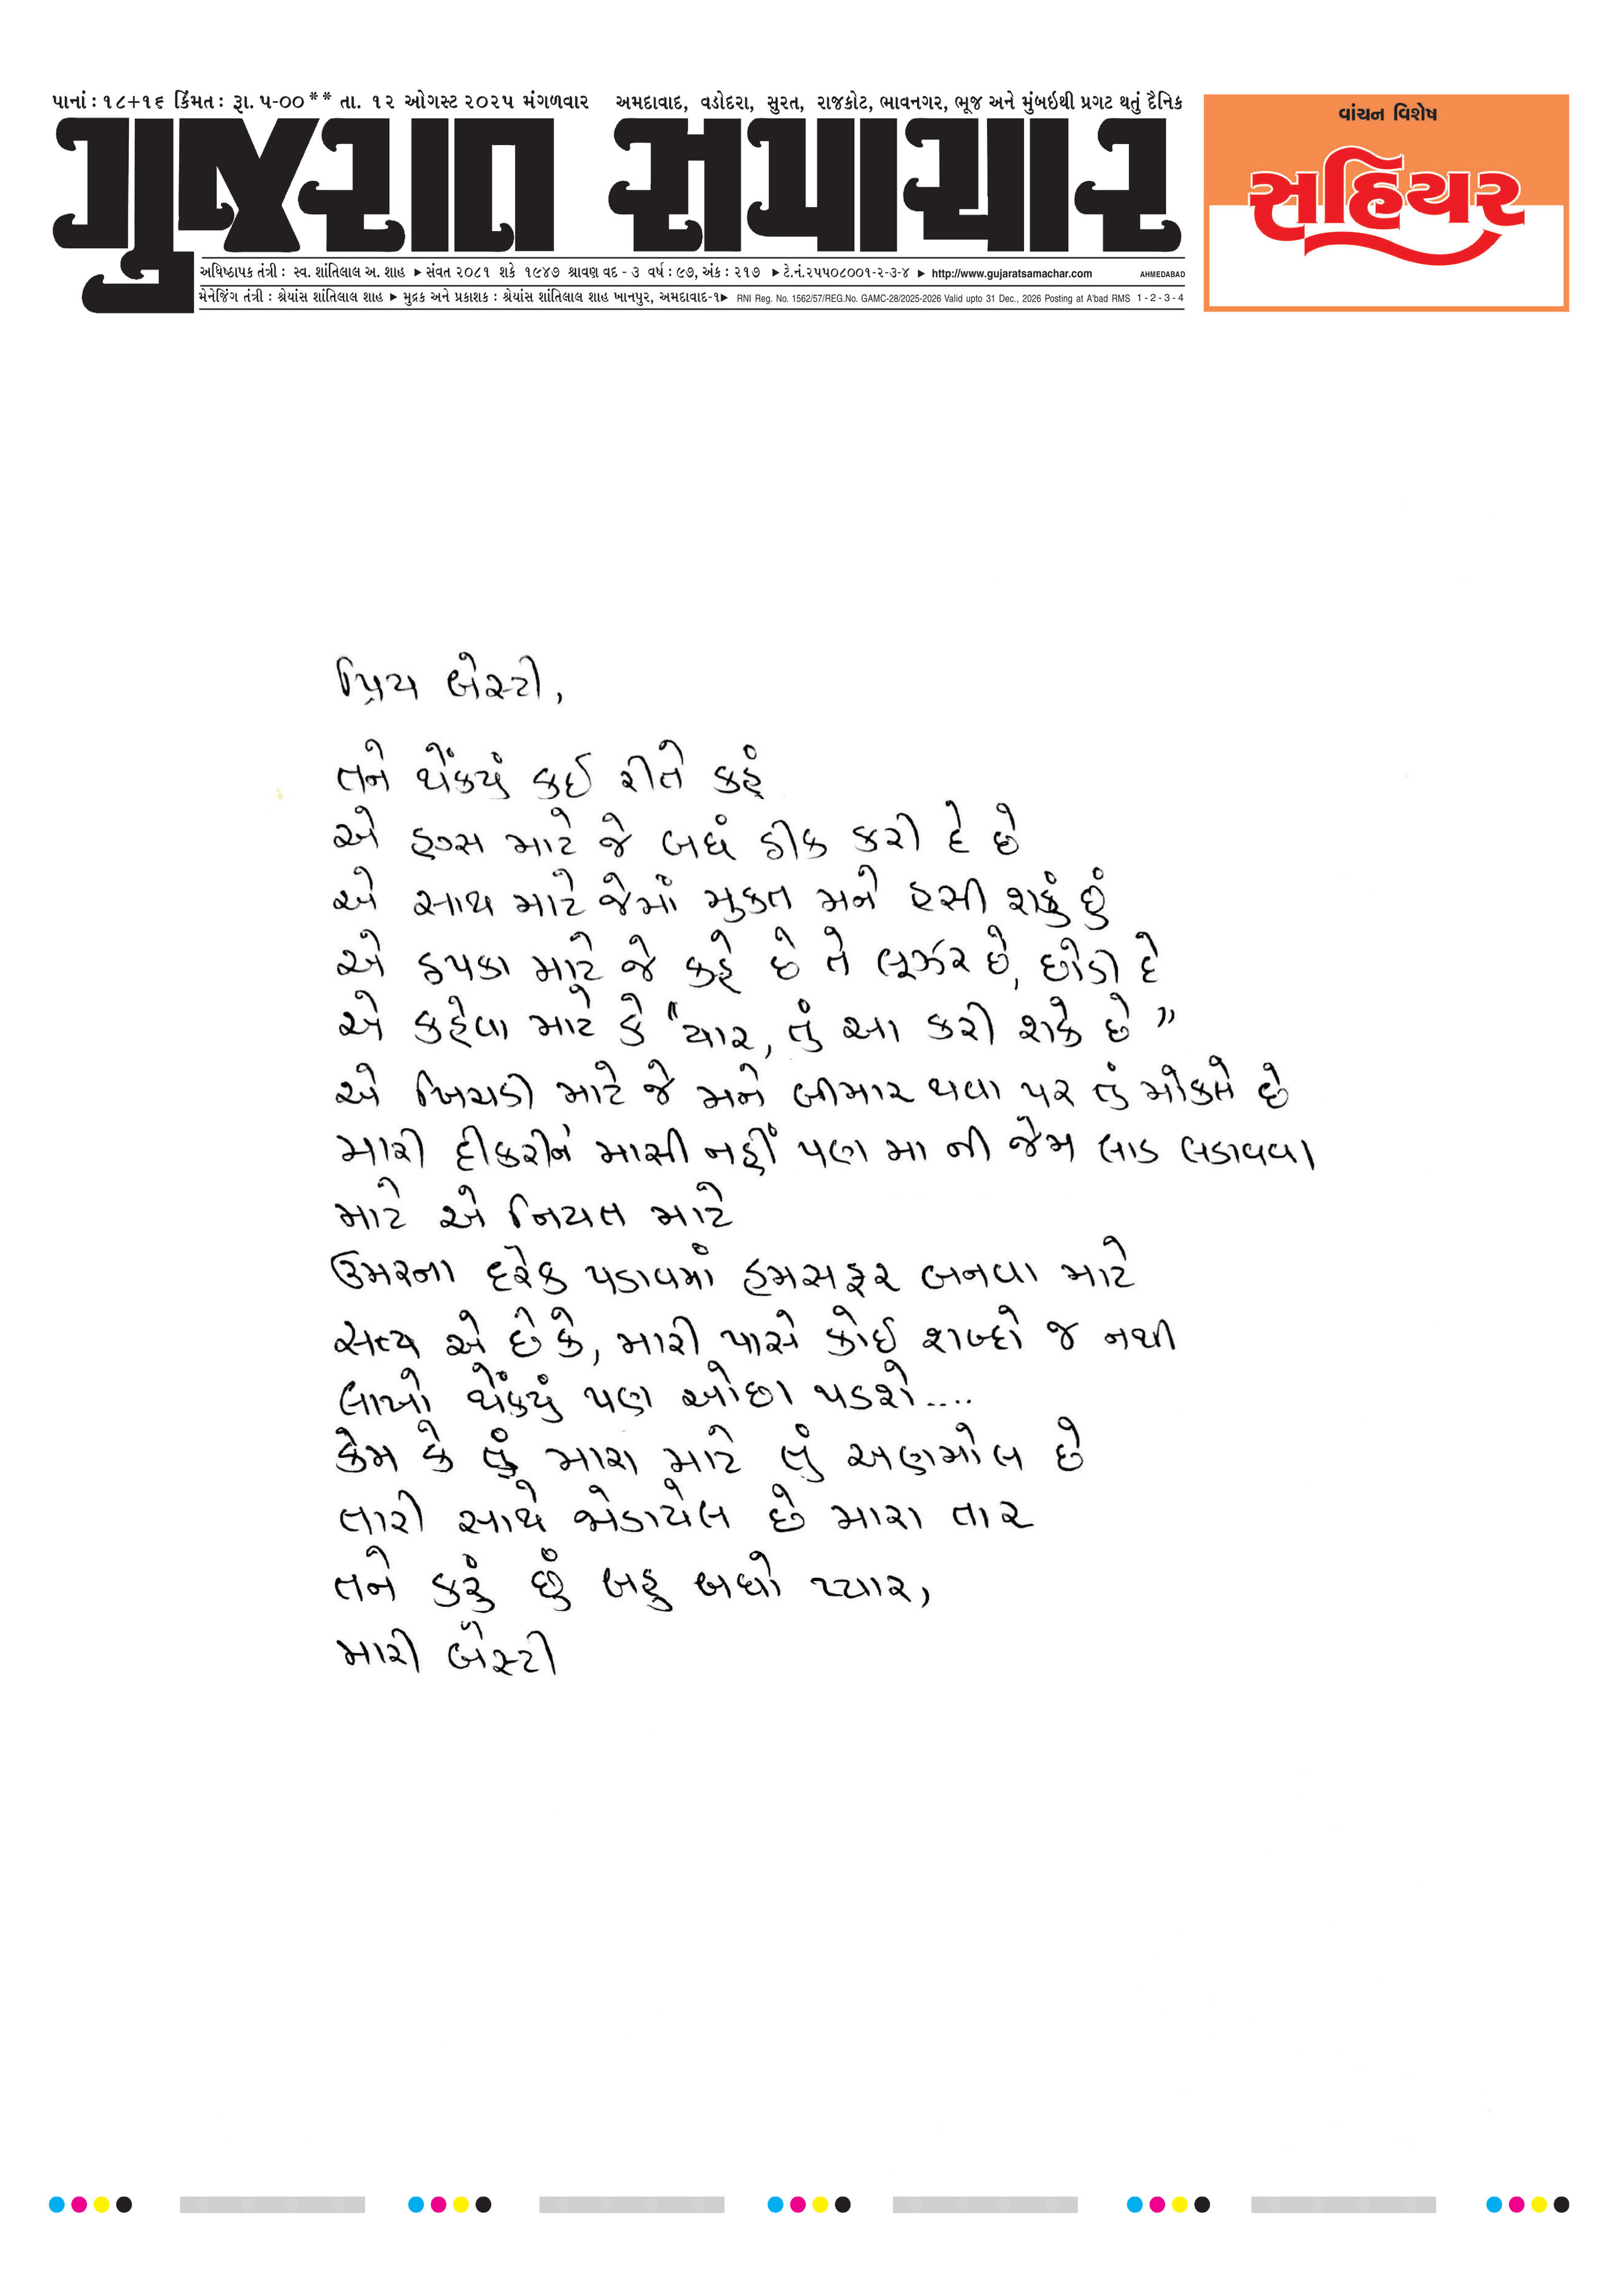 પાનાં : ૧૮+૧૬ કિંમત : રૂા. ૫-૦૦ ** તા. ૧૨ ઓગસ્ટ ૨૦૨૫ મંગળવાર અમદાવાદ, વડોદરા, સુરત, રાજકોટ, ભાવનગર, ભૂજ અને મુંબઇથી પ્રગટ થતું દૈનિક
ગુજરાત સમાચાર
અધિષ્ઠાપક તંત્રી : સ્વ. શાંતિલાલ અ. શાહ ▶ સંવત ૨૦૮૧ શકે ૧૯૪૭ શ્રાવણ વદ - ૩ વર્ષ : ૯૭, અંક : ૨૧૭ ▶ ટે.નં.૨૫૫૦૮૦૦૧-૨-૩-૪ ▶ http://www.gujaratsamachar.com AHMEDABAD
મેનેજિંગ તંત્રી : શ્રેયાંસ શાંતિલાલ શાહ ▶ મુદ્રક અને પ્રકાશક : શ્રેયાંસ શાંતિલાલ શાહ ખાનપુર, અમદાવાદ-૧▶ RNI Reg. No. 1562/57/REG.No. GAMC-28/2025-2026 Valid upto 31 Dec., 2026 Posting at A'bad RMS 1 - 2 - 3 - 4
વાંચન વિશેષ
સહિયર
પ્રિય બેસ્ટી,
તને થેંક્યું કઈ રીતે કહું
એ હગ્સ માટે જે બધં ઠીક કરી દે છે
એ સાથ માટે જેમાં મુક્ત મને હસી શકું છું
એ ઠપકા માટે જે કહે છે તે લૂઝર છે, છોડી દે
એ કહેવા માટે કે "યાર, તું આ કરી શકે છે"
એ ખિચડી માટે જે મને બીમાર થવા પર તું મોકલે છે
મારી દીકરીને માસી નહીં પણ મા ની જેમ લાડ લડાવવા
માટે એ નિયત માટે
ઉમરના દરેક પડાવમાં હમસફર બનવા માટે
સત્ય એ છે કે, મારી પાસે કોઈ શબ્દો જ નથી
લાખો થેંક્યું પણ ઓછા પડશે....
કેમ કે તું મારા માટે તું અણમોલ છે
તારી સાથે જોડાયેલ છે મારા તાર
તને કરું છું બહુ બધો પ્યાર,
મારી બેસ્ટી